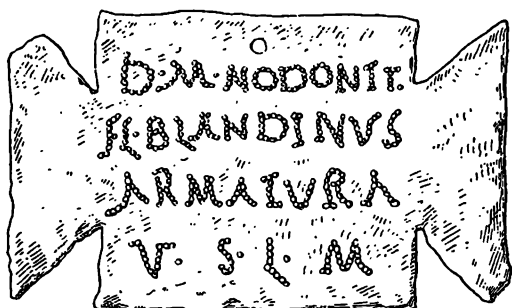 D·M·NODONTI.
FL·BLANDINVS
ARMATVRA
V·S·L·M